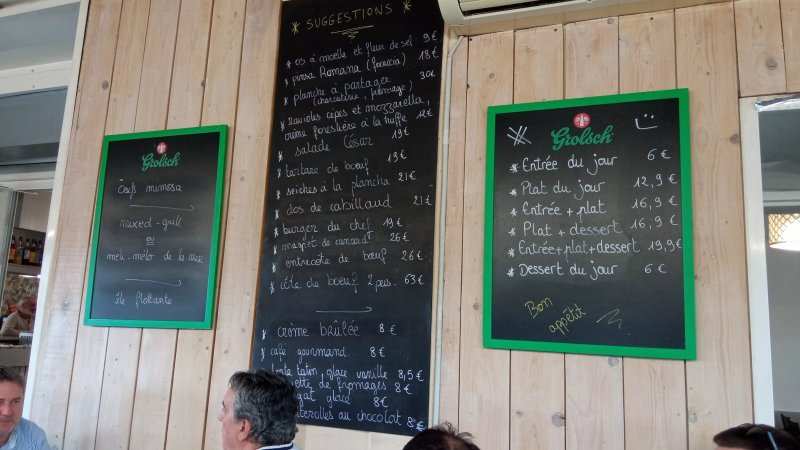 Grolsch
Oeufs mimosa
mixed-grill
ou
méli-mélo de la mer
île flottante
SUGGESTIONS
* os à moelle et fleur de sel 9€
* pinsa Romana (focaccia) 18€
* planche à partager 30€
(charcuterie, fromage)
* Ravioles cèpes et mozzarella,
crème forestière à la truffe 12€
* salade César 19€
* tartare de bœuf 19€
* seiches à la plancha 21€
* dos de cabillaud 21€
* burger du chef 19€
* magret de canard 26€
* entrecôte de bœuf 26€
* côte de bœuf 2 pers. 63€
* crème brûlée 8€
* café gourmand 8€
tatin, glace vanille 8,5€
de fromages 8€
glacé 8€
au chocolat 8€
Grolsch
* Entrée du jour 6€
* Plat du jour 12,9€
* Entrée + plat 16,9€
* Plat + dessert 16,9€
* Entrée+plat+dessert 19,9€
* Dessert du jour 6€
Bon
appétit